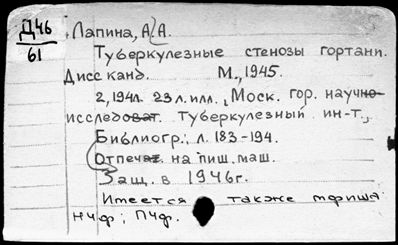 Д46
61
Лапина, А.А.
Туберкулезные стенозы гортани.
Дисс. канд. М., 1945.
2, 194л. 23 л. илл., Моск. гор. научно-
исследоват. Туберкулезный ин-т.,
Библиогр.: л. 183-194.
Отпечат. на пиш. маш.
Защ. в 1946г.
Имеется также мфиша
НЧф; ПЧф.